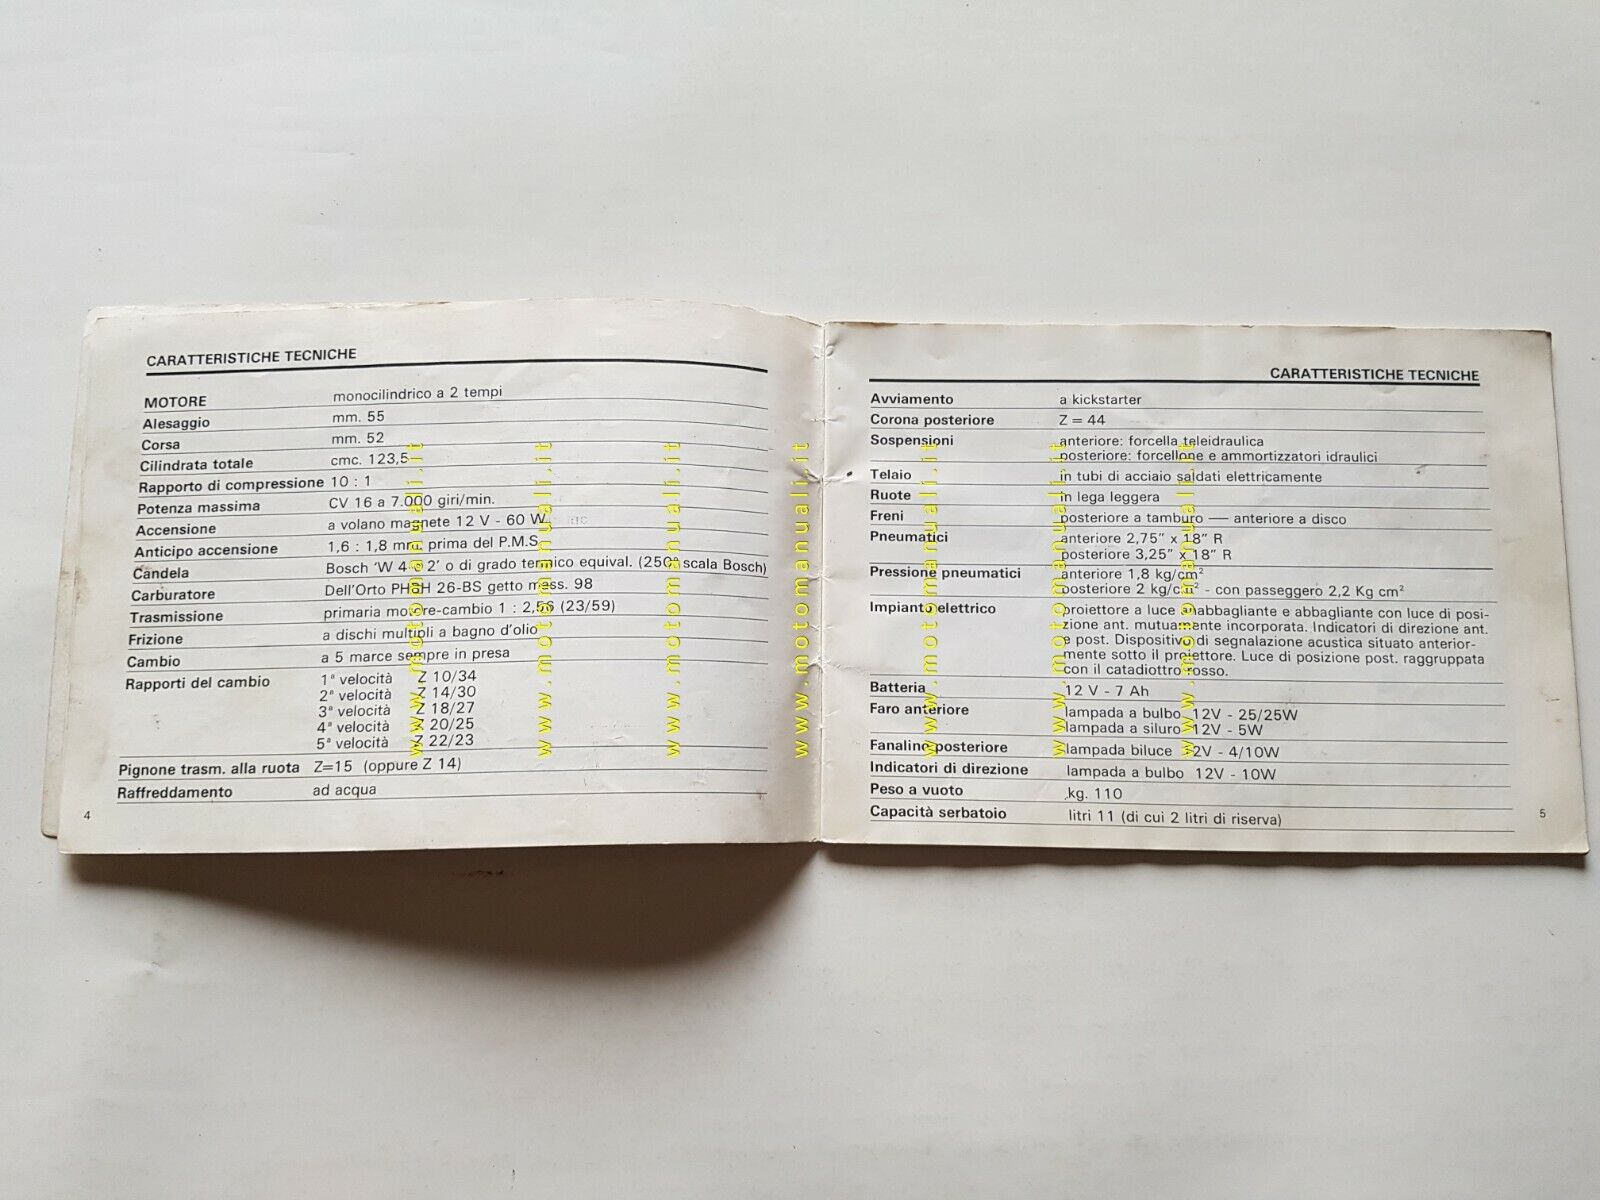 CARATTERISTICHE TECNICHE
MOTORE monocilindrico a 2 tempi
Alesaggio mm. 55
Corsa mm. 52
Cilindrata totale cmc. 123,5
Rapporto di compressione 10 : 1
Potenza massima CV 16 a 7.000 giri/min.
Accensione a volano magnete 12 V - 60 W
Anticipo accensione 1,6 : 1,8 mm prima del P.M.S.
Candela Bosch 'W 4 2' o di grado termico equival. (250° scala Bosch)
Carburatore Dell'Orto PHBH 26-BS getto mass. 98
Trasmissione primaria motore-cambio 1 : 2,56 (23/59)
Frizione a dischi multipli a bagno d'olio
Cambio a 5 marce sempre in presa
Rapporti del cambio 1ª velocità Z 10/34
2ª velocità Z 14/30
3ª velocità Z 18/27
4ª velocità Z 20/25
5ª velocità Z 22/23
Pignone trasm. alla ruota Z=15 (oppure Z 14)
Raffreddamento ad acqua
4
CARATTERISTICHE TECNICHE
Avviamento a kickstarter
Corona posteriore Z = 44
Sospensioni anteriore: forcella teleidraulica
posteriore: forcellone e ammortizzatori idraulici
Telaio in tubi di acciaio saldati elettricamente
Ruote in lega leggera
Freni posteriore a tamburo — anteriore a disco
Pneumatici anteriore 2,75" x 18" R
posteriore 3,25" x 18" R
Pressione pneumatici anteriore 1,8 kg/cm²
posteriore 2 kg/cm² - con passeggero 2,2 Kg cm²
Impianto elettrico proiettore a luce anabbagliante e abbagliante con luce di posi-
zione ant. mutuamente incorporata. Indicatori di direzione ant.
e post. Dispositivo di segnalazione acustica situato anterior-
mente sotto il proiettore. Luce di posizione post. raggruppata
con il catadiottro rosso.
Batteria 12 V - 7 Ah
Faro anteriore lampada a bulbo 12V - 25/25W
lampada a siluro 12V - 5W
Fanalino posteriore lampada biluce 12V - 4/10W
Indicatori di direzione lampada a bulbo 12V - 10W
Peso a vuoto kg. 110
Capacità serbatoio litri 11 (di cui 2 litri di riserva)
5
www.motomanuali.it
www.motomanuali.it
www.motomanuali.it
www.motomanuali.it
www.motomanuali.it
www.motomanuali.it
www.motomanuali.it